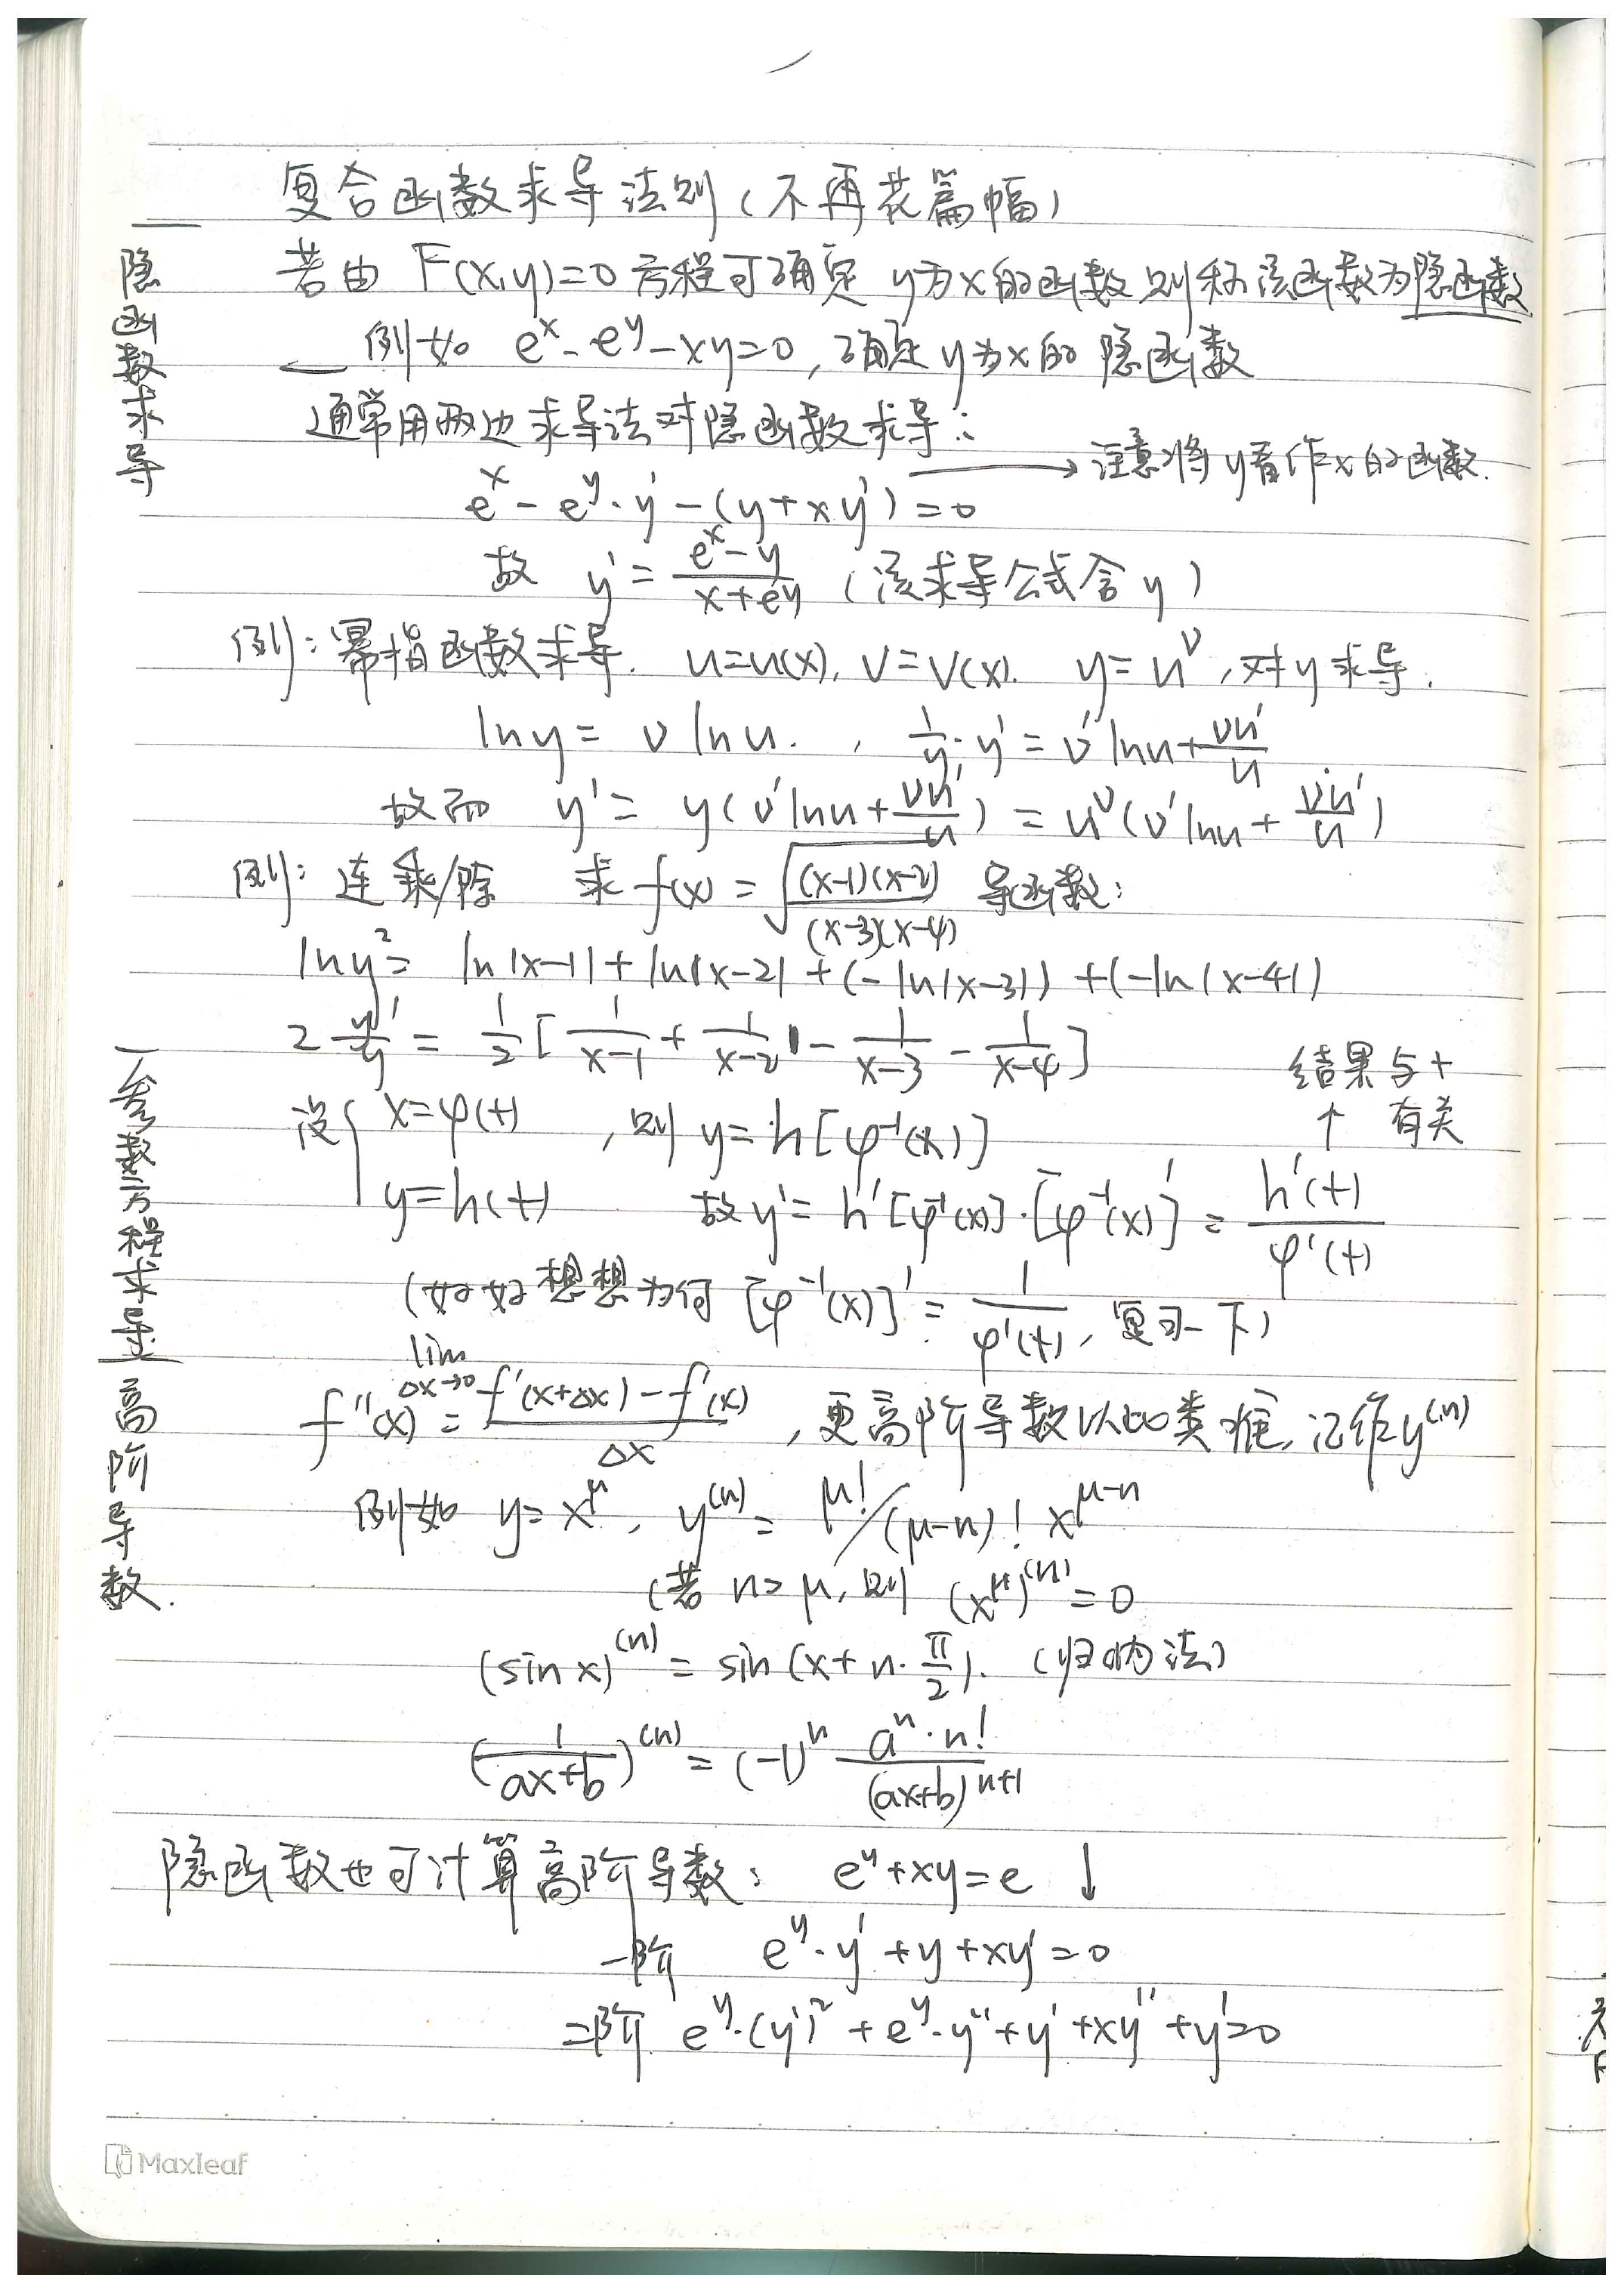 复合函数求导法则（不再花篇幅）
隐函数求导
若由 F(x,y)=0 方程可确定 y为x的函数则称该函数为隐函数
例如 e^x - e^y - xy = 0, 确定 y为x的 隐函数
通常用两边求导法对隐函数求导：
→ 注意将y看作x的函数.
e^x - e^y · y' - (y + xy') = 0
故 y' = (e^x - y)/(x + e^y) （该求导公式含 y）
例：幂指函数求导. u=u(x), v=v(x). y=u^v, 对y求导.
ln y = v ln u. , 1/y · y' = v' ln u + vu'/u
故而 y' = y(v' ln u + vu'/u) = u^v (v' ln u + vu'/u)
例：连乘/除 求 f(x) = √((x-1)(x-2)/(x-3)(x-4)) 导函数：
ln y² = ln|x-1| + ln|x-2| + (-ln|x-3|) + (-ln|x-4|)
2 y'/y = 1/2 [1/(x-1) + 1/(x-2) - 1/(x-3) - 1/(x-4)]
参数方程求导
结果与t
↑ 有关
设{ x=φ(t) , 则 y = h[φ⁻¹(x)]
y=h(t) 故y' = h'[φ⁻¹(x)]·[φ⁻¹(x)]' = h'(t)/φ'(t)
（好好想想为何 [φ⁻¹(x)]' = 1/φ'(t), 复习一下）
高阶导数.
f''(x) = lim Δx→0 (f'(x+Δx) - f'(x))/Δx , 更高阶导数以此类推, 记作y^(n)
例如 y = x^μ, y^(n) = μ!/(μ-n)! x^(μ-n)
（若 n>μ, 则 (x^μ)^(n) = 0
(sin x)^(n) = sin(x + n·π/2). （归纳法）
(1/(ax+b))^(n) = (-1)^n a^n·n!/(ax+b)^(n+1)
隐函数也可计算高阶导数： e^y + xy = e ↓
一阶 e^y · y' + y + xy' = 0
二阶 e^y·(y')² + e^y·y'' + y' + xy'' + y' = 0
Maxleaf